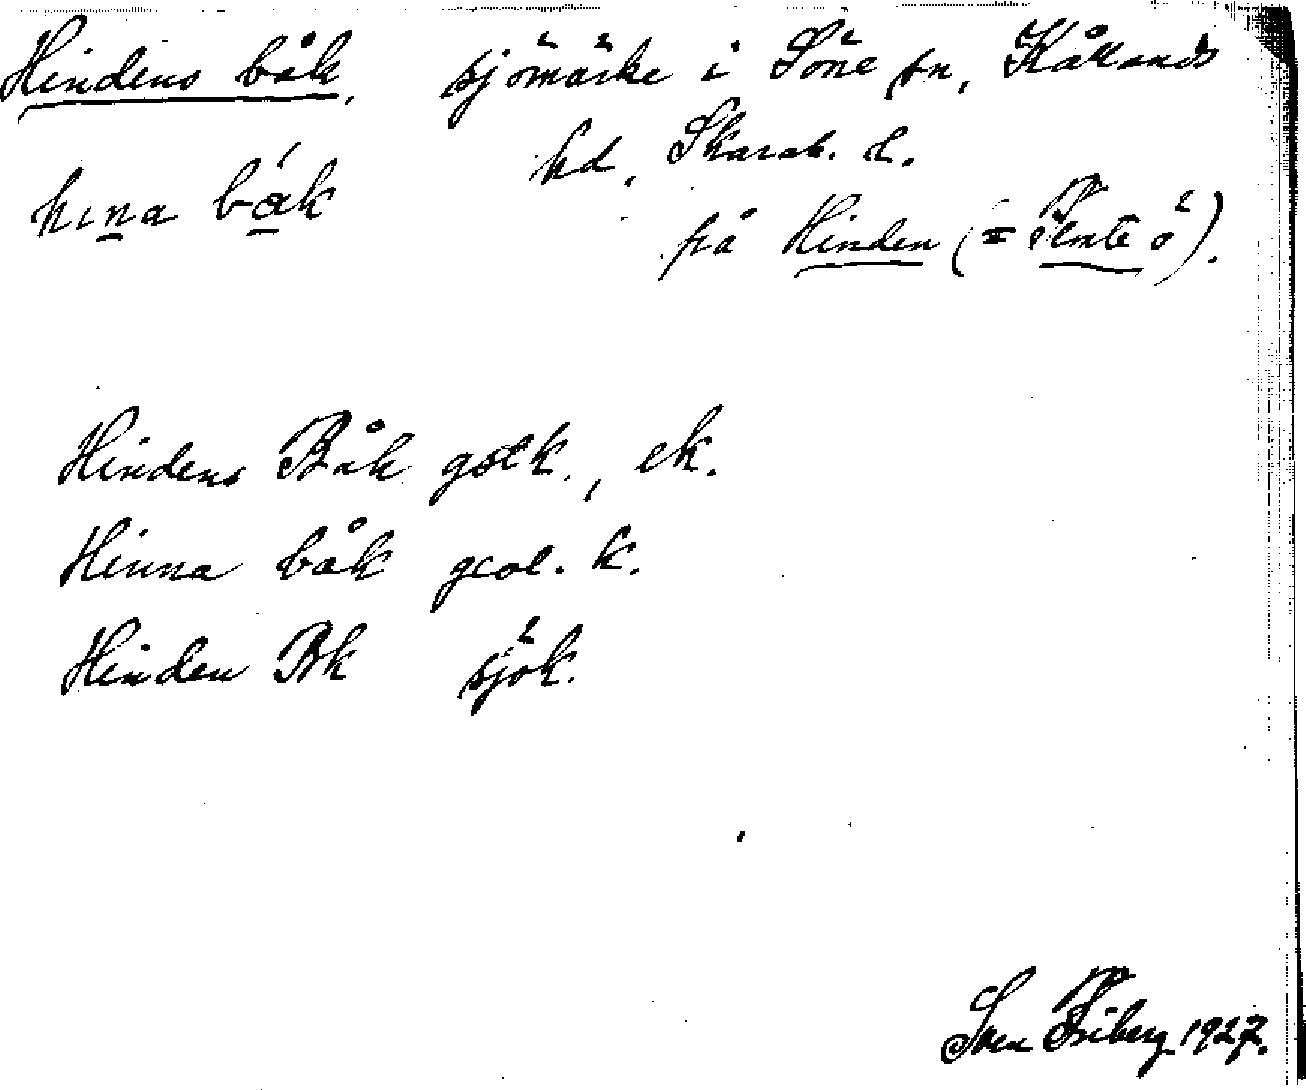 Hindens båk, sjömärke i Söne sn, Kållands
hd, Skarab. l.
hɩna bák
på Hinden (= Tente ö).
Hindens Båk gstk., ek.
Hinna båk geol. k.
Hinden Bk sjök.
Sven Friberg 1927.